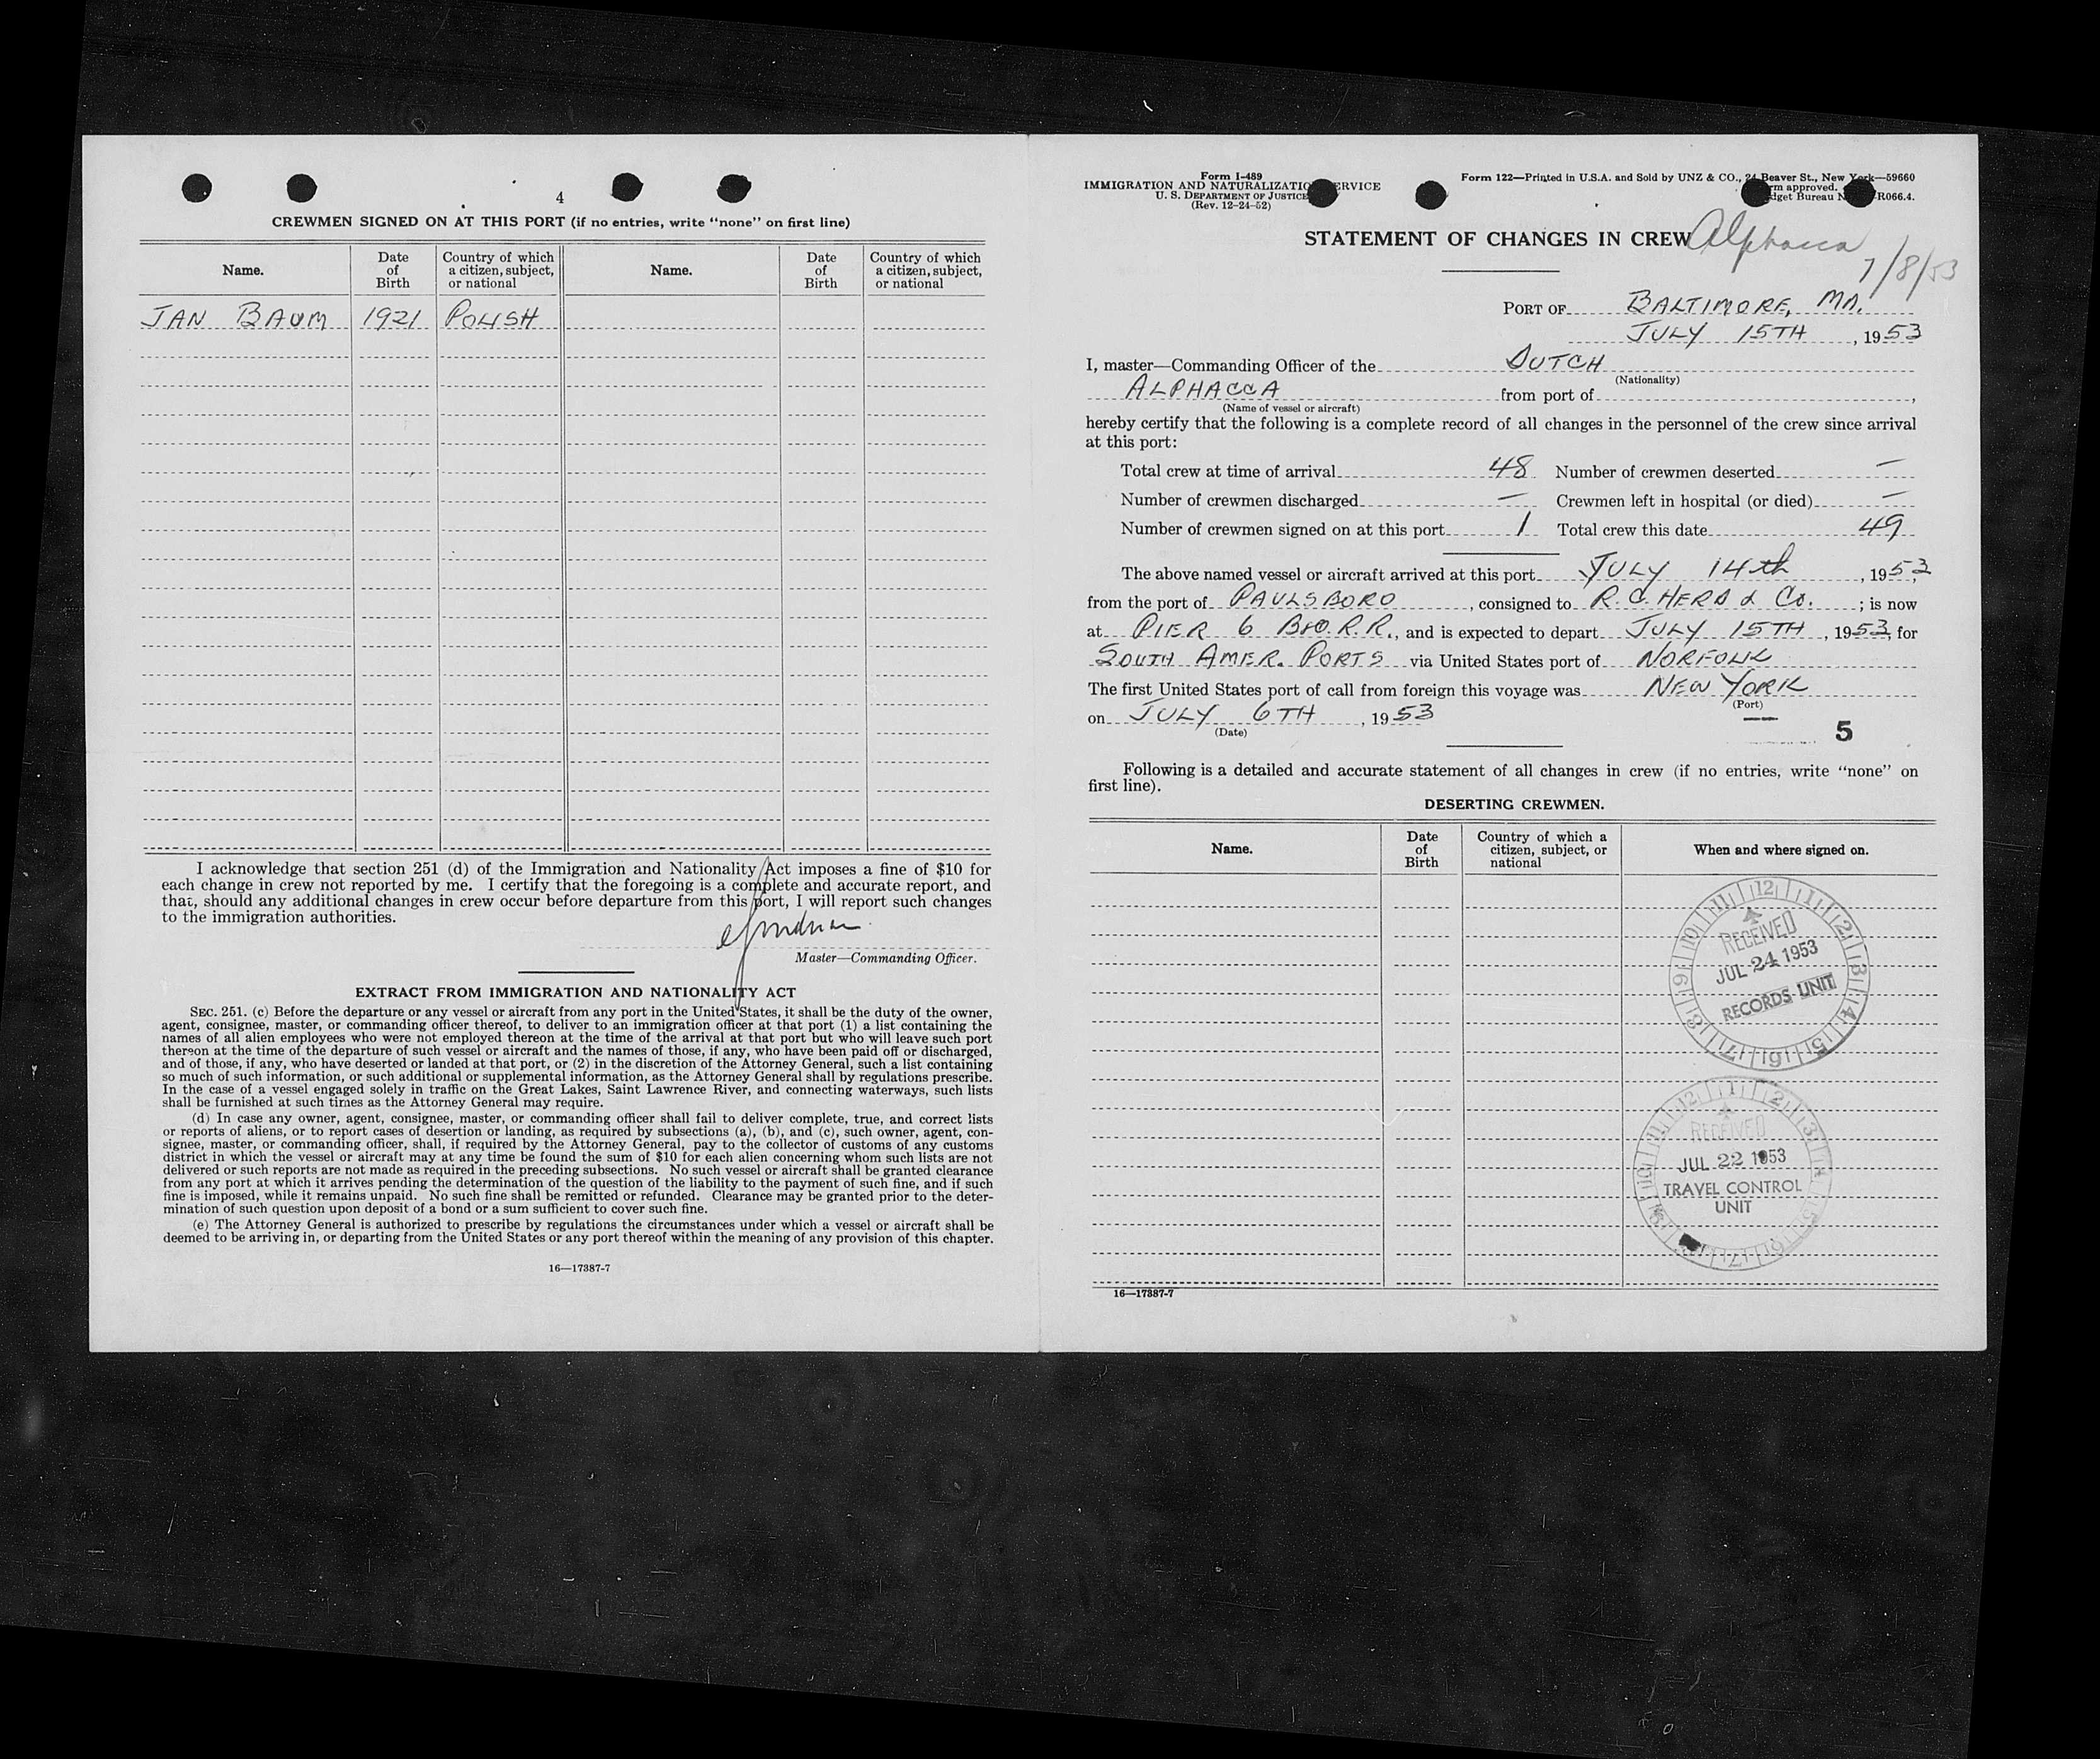 4
CREWMEN SIGNED ON AT THIS PORT (if no entries, write “none” on first line)
Name. Date of Birth Country of which a citizen, subject, or national Name. Date of Birth Country of which a citizen, subject, or national
JAN BAUM 1921 POLISH
I acknowledge that section 251 (d) of the Immigration and Nationality Act imposes a fine of $10 for
each change in crew not reported by me. I certify that the foregoing is a complete and accurate report, and
that, should any additional changes in crew occur before departure from this port, I will report such changes
to the immigration authorities.
Master—Commanding Officer.
EXTRACT FROM IMMIGRATION AND NATIONALITY ACT
SEC. 251. (c) Before the departure or any vessel or aircraft from any port in the United States, it shall be the duty of the owner,
agent, consignee, master, or commanding officer thereof, to deliver to an immigration officer at that port (1) a list containing the
names of all alien employees who were not employed thereon at the time of the arrival at that port but who will leave such port
thereon at the time of the departure of such vessel or aircraft and the names of those, if any, who have been paid off or discharged,
and of those, if any, who have deserted or landed at that port, or (2) in the discretion of the Attorney General, such a list containing
so much of such information, or such additional or supplemental information, as the Attorney General shall by regulations prescribe.
In the case of a vessel engaged solely in traffic on the Great Lakes, Saint Lawrence River, and connecting waterways, such lists
shall be furnished at such times as the Attorney General may require.
(d) In case any owner, agent, consignee, master, or commanding officer shall fail to deliver complete, true, and correct lists
or reports of aliens, or to report cases of desertion or landing, as required by subsections (a), (b), and (c), such owner, agent, con-
signee, master, or commanding officer, shall, if required by the Attorney General, pay to the collector of customs of any customs
district in which the vessel or aircraft may at any time be found the sum of $10 for each alien concerning whom such lists are not
delivered or such reports are not made as required in the preceding subsections. No such vessel or aircraft shall be granted clearance
from any port at which it arrives pending the determination of the question of the liability to the payment of such fine, and if such
fine is imposed, while it remains unpaid. No such fine shall be remitted or refunded. Clearance may be granted prior to the deter-
mination of such question upon deposit of a bond or a sum sufficient to cover such fine.
(e) The Attorney General is authorized to prescribe by regulations the circumstances under which a vessel or aircraft shall be
deemed to be arriving in, or departing from the United States or any port thereof within the meaning of any provision of this chapter.
16—17387-7
Form I-489
IMMIGRATION AND NATURALIZATION SERVICE
U. S. DEPARTMENT OF JUSTICE
(Rev. 12-24-52)
Form 122—Printed in U.S.A. and Sold by UNZ & CO., 24 Beaver St., New York—59660
approved.
Budget Bureau R066.4.
STATEMENT OF CHANGES IN CREW Alphacca
7/8/53
PORT OF BALTIMORE, MD.
JULY 15TH, 1953
I, master—Commanding Officer of the DUTCH
(Nationality)
ALPHACCA from port of ,
(Name of vessel or aircraft)
hereby certify that the following is a complete record of all changes in the personnel of the crew since arrival
at this port:
Total crew at time of arrival 48 Number of crewmen deserted —
Number of crewmen discharged — Crewmen left in hospital (or died) —
Number of crewmen signed on at this port 1 Total crew this date 49
The above named vessel or aircraft arrived at this port JULY 14th, 1953,
from the port of PAULSBORO, consigned to R. C. HERD & Co.; is now
at PIER 6 B&O.R.R., and is expected to depart JULY 15TH, 1953, for
SOUTH AMER. PORTS via United States port of NORFOLK
The first United States port of call from foreign this voyage was NEW YORK
(Port)
on JULY 6TH, 1953
(Date)
5
Following is a detailed and accurate statement of all changes in crew (if no entries, write “none” on
first line).
DESERTING CREWMEN.
Name. Date of Birth Country of which a citizen, subject, or national When and where signed on.
12 1 2 3 4 5 6 7 8 9 10 11
RECEIVED
JUL 24 1953
RECORDS UNIT
12 1 2 3 4 5 6 7 8 9 10 11
RECEIVED
JUL 22 1953
TRAVEL CONTROL
UNIT
16—17387-7